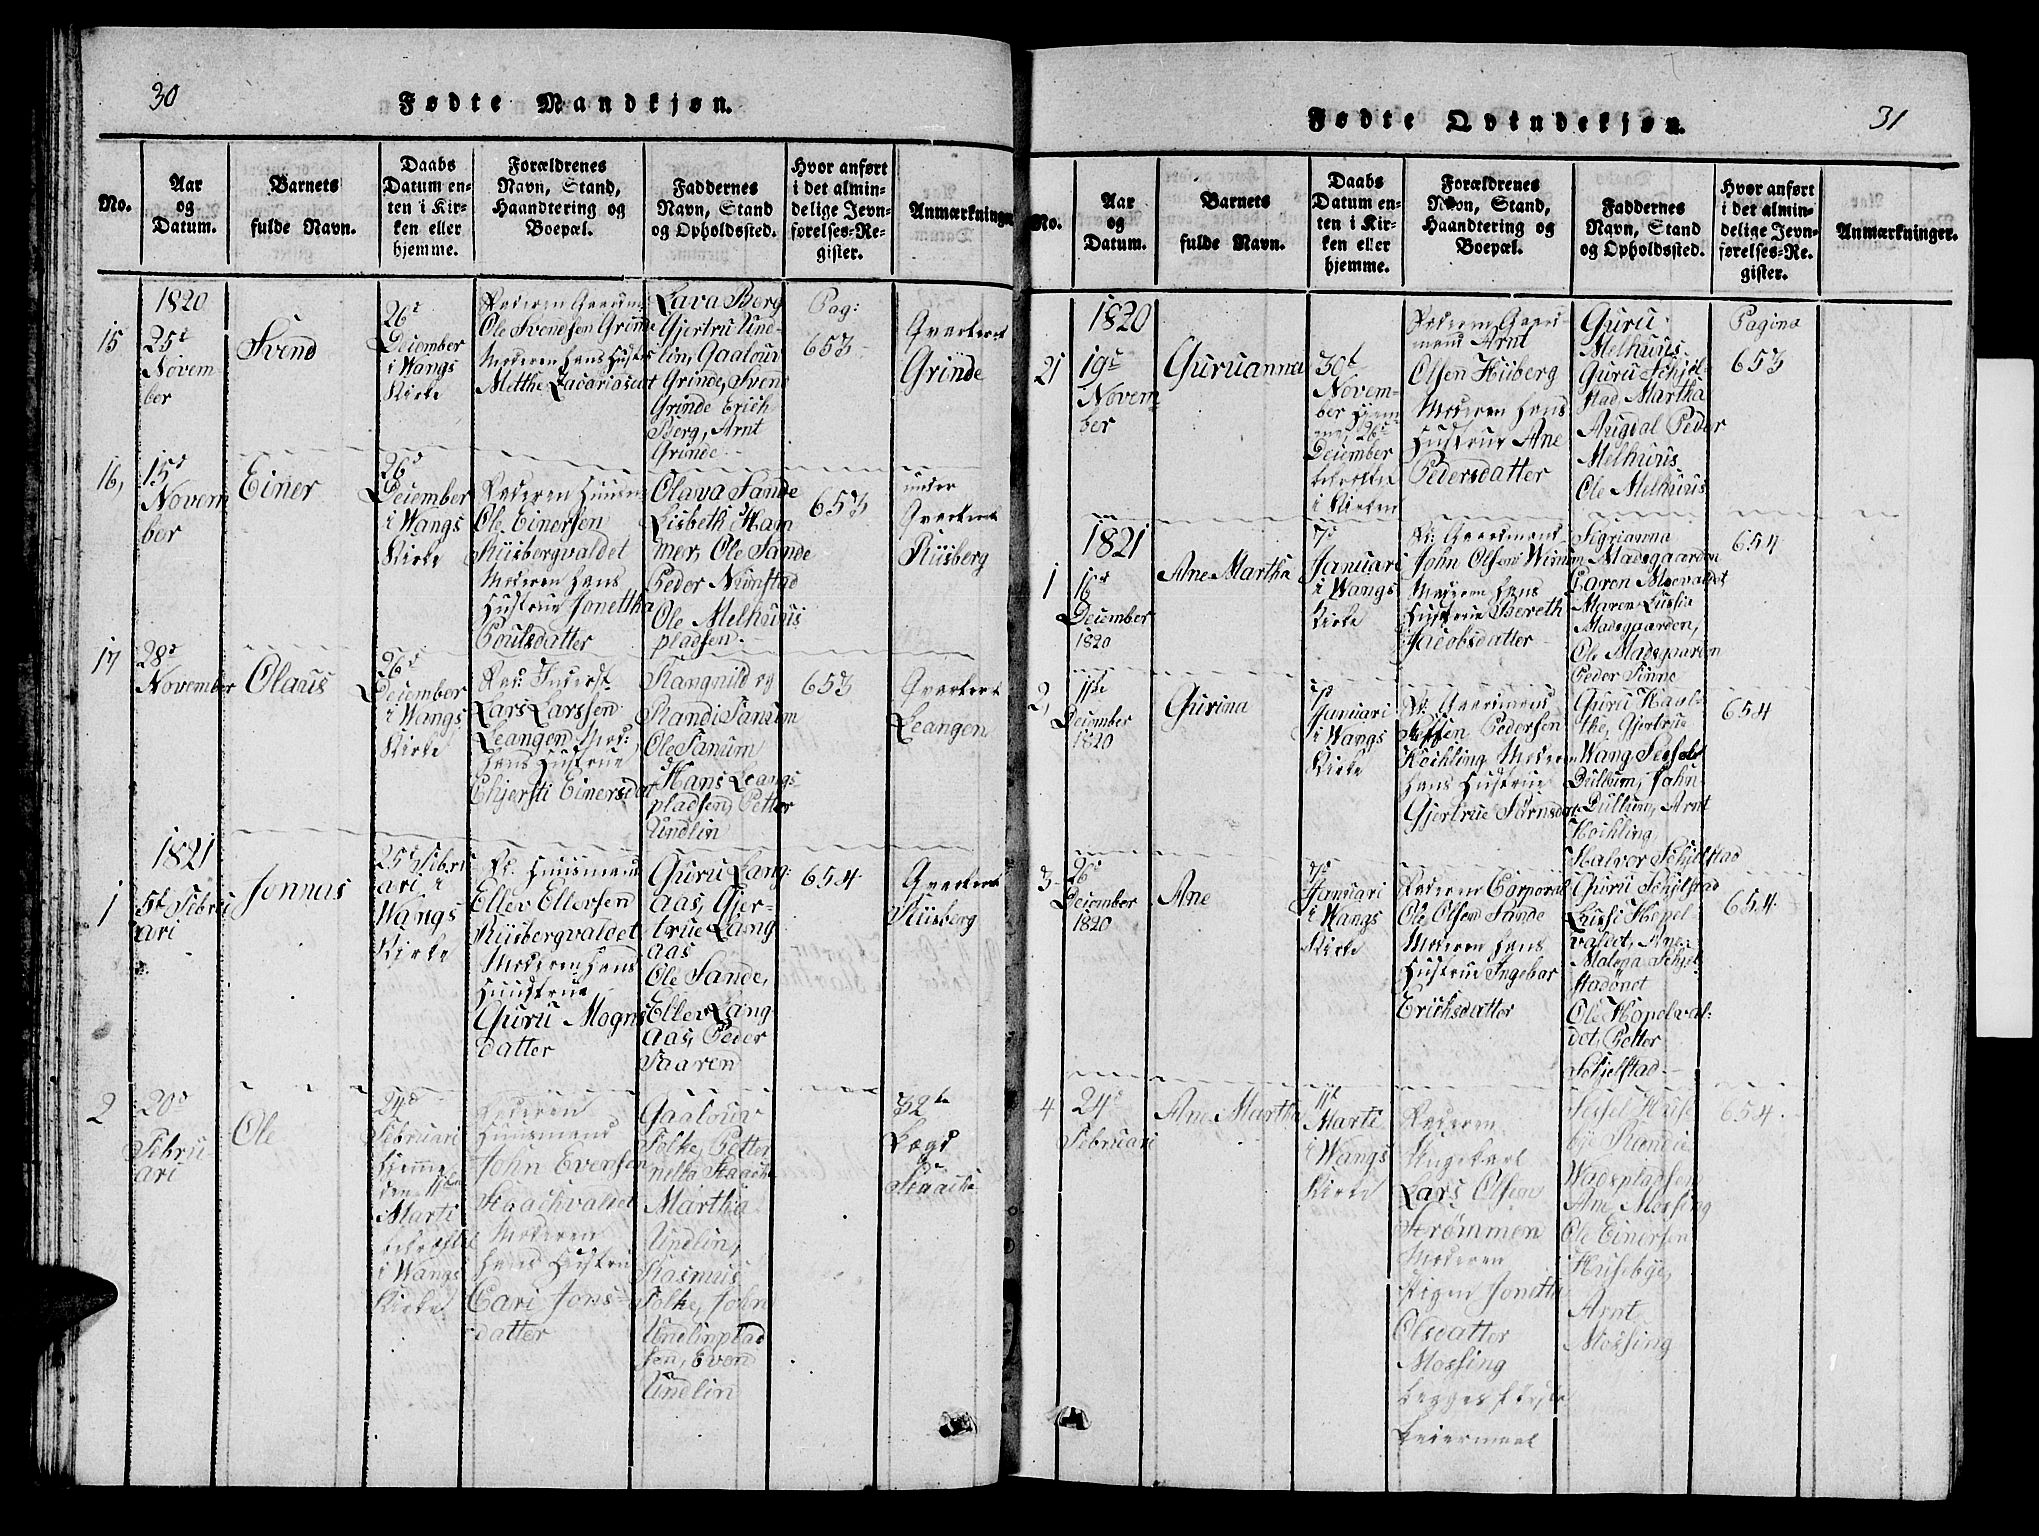 30
Fødte Mandkjøn.
No.
Aar
og
Datum.
Barnets
fulde Navn.
Daabs
Datum en-
ten i Kir-
ken eller
hjemme.
Forældrenes
Navn, Stand,
Haandtering og
Boepæl.
Faddernes
Navn, Stand
og Opholdssted.
Hvor anført
i det almin-
delige Jevn-
førelses-Re-
gister.
Anmærkninger
15
1820
25d
Novem
ber
Svend
26d
December
i Wangs
Kirke
Faderen Gaardm:
Ole Svendsen Grinde
Moderen hans Hustru
Metthe Zacariasdat
Lava Berg
Gjertru Und-
lin, Gaalour
Grinde, Svend
Grinde Erich
Berg, Arnt
Grinde
Pag:
653
Qvarteret
Grinde
16,
15d
Novem
ber
Einer
26d
December
i Wangs
Kirke
Faderen Huusm
Ole Einersen
Riisbergvaldet
Moderen hans
Hustrue Jonettha
Poulsdatter
Olava Sande
Lisbeth Ham
mer, Ole Sande
Peder Nimstad
Ole Melhuus
pladsen
653
under
Qvarteret
Riisberg
17
28d
November
Olaus
26d
December
i Wangs
Kirke
Fad: Inderst
Lars Larssen
Leangen Mod:
hans Hustrue
Chjersti Einersdat
Rangnild og
Randi Sanum
Ole Sanum
Hans Leangs
pladsen, Petter
Undlin
653
Qvarteret
Leangen
1821
1
5t Febru
ari
Jonnas
25d Febru
ari i
Wangs
Kirke
Fd. Huusmand
Ellev Ellefsen
Riisbergvaldet
Moderen hans
Huustrue
Guru Mogns
datter
Guru Lang-
aas, Gjer-
true Lang
aas
Ole Sande,
Ellev Lang
aas, Peder
Saaren
654
Qvarteret
Riisberg
2
20d
Febru
ari
Ole
24d
Februari
hjemme
den 11te
Marti
bekræftet
i Wangs
Kirke
Faderen
Huusmand
John Evensen
Staachvaldet
Moderen
hans Hustru
Cari Jons-
datter
Gaalour
Folke, Petter
nilla Staach
Martha
Undlin,
Rasmus
Folke, John
Undlinplad
sen, Even
Undlin
32te
Lægd
31
Fødte Qvindekjøn.
No.
Aar
og
Datum.
Barnets
fulde Navn.
Daabs
Datum en-
ten i Kir-
ken eller
hjemme.
Forældrenes
Navn, Stand,
Haandtering og
Boepæl.
Faddernes
Navn, Stand
og Opholdssted.
Hvor anført
i det almin-
delige Jevn-
førelses-Re-
gister.
Anmærkninger.
1820
21
19d
Novem
ber
Guruanna
30t
Novem-
ber Hjem
me, 26d
December
i Kirken
Faderen Gaard-
mand Arnt
Olsen Hüberg
Moderen hans
Hustrue Ane
Pedersdatter
Guru
Melhuus
Guru Schjel-
stad, Martha
Augdal Peder
Melhuus
Ole Melhuus
Pagina
653
1821
1
16d
December
1820
Ane Martha
7d
Januari
i Wangs
Kirke
Fd: Gaardmand
John Olsen Winum
Moderen hans
Hustrue Bereth
Jacobsdatter
Sigrianna
Madsgaarden
Caren Moevaldet
Maren Lussia
Madsgaarden,
Ole Madsgaarden
Peder Sinne
654
2,
11te
December
1820
Gurina
7d
Januari
i Wangs
Kirke
Fd. Gaardmand
Steffen Pedersen
Kochling Moderen
hans Hustrue
Gjertrue Jørnsdat
Guru Haal-
the, Gjertrue
Wang Sessel
Dullum, John
Dullum, Arnt
Kochling
654
3
26d
December
1820
Ane
7d
Januari
i Wangs
Kirke
Faderen Corporal
Ole Olsen Sande
Moderen hans
Hustrue Ingebor
Erichsdatter
Halvor Schjelstad
Guru Schjelstad
Lussi Hopel-
valdet, Ane
Malena Schjel-
stadønet
Ole Hopelval-
det, Petter
Schjelstad
654
4
24d
Februari
Ane Martha
11t
Marti
i Wangs
Kirke
Faderen
Ungekarl
Lars Olsen
Strømmen
Moderen
Pigen Jonetta
Olsdatter
Mossing
begges første
Leiermaal
Sessel Huse
bye Randie
Wadspladsen
Ane Mossing
Ole Einersen
Husebye,
Arnt
Mossing
654